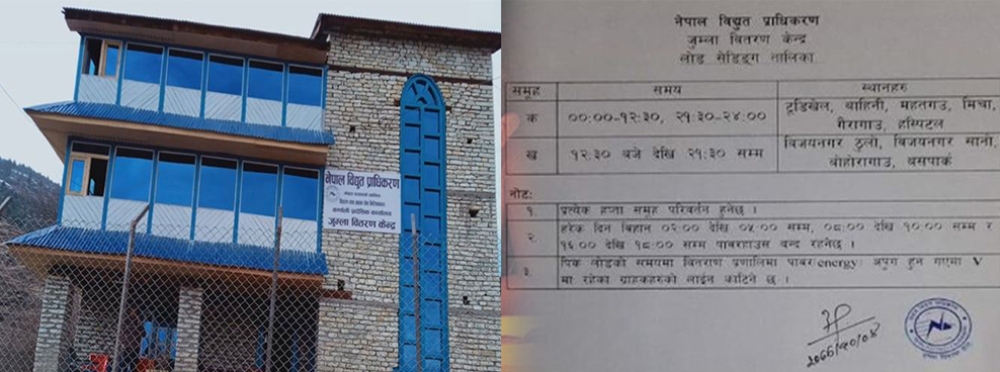 नेपाल विद्युत प्राधिकरण
जुम्ला वितरण केन्द्र
नेपाल विद्युत प्राधिकरण
जुम्ला वितरण केन्द्र
लोड सेडिङ्ग तालिका
समूह समय स्थानहरु
क ००:००-१२:३०, २१:३०-२४:०० टूडिखेल, बाहिनी, महतगाउ, मिचा,
गैरागाउ, हस्पिटल
ख १२:३० बजे देखि २१:३० सम्म बिजयनगर ठुलो, बिजयनगर सानो,
बोहोरागाउ, बसपार्क
नोट:
१. प्रत्येक हप्ता समूह परिवर्तन हुनेछ ।
२ हरेक दिन विहान ०२:०० देखि ०५:०० सम्म, ०८:०० देखि १०:०० सम्म र
१६:०० देखि १८:०० सम्म पावरहाउस बन्द रहनेछ ।
३. पिक लोडको समयमा वितराण प्रणालिमा पावर(energy) अपुग हुन गएमा V
मा रहेका ग्राहकहरुको लाईन काटिने छ ।